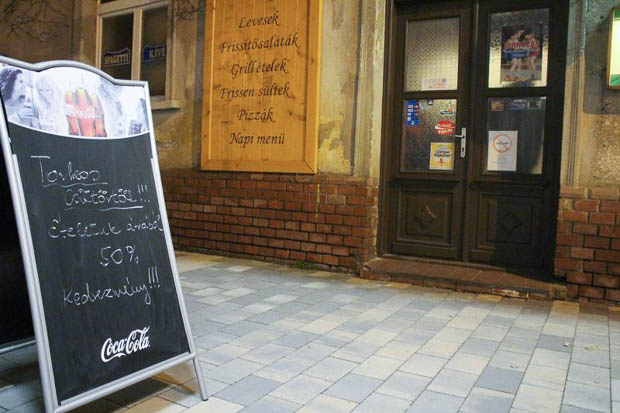 SPAGETTI
KÁVÉ
Levesek
Frissítősaláták
Grill ételek
Frissen sültek
Pizzák
Napi menü
Torkos
Csütörtök!!!
Ételeink árából
50%
Kedvezmény!!!
Coca-Cola